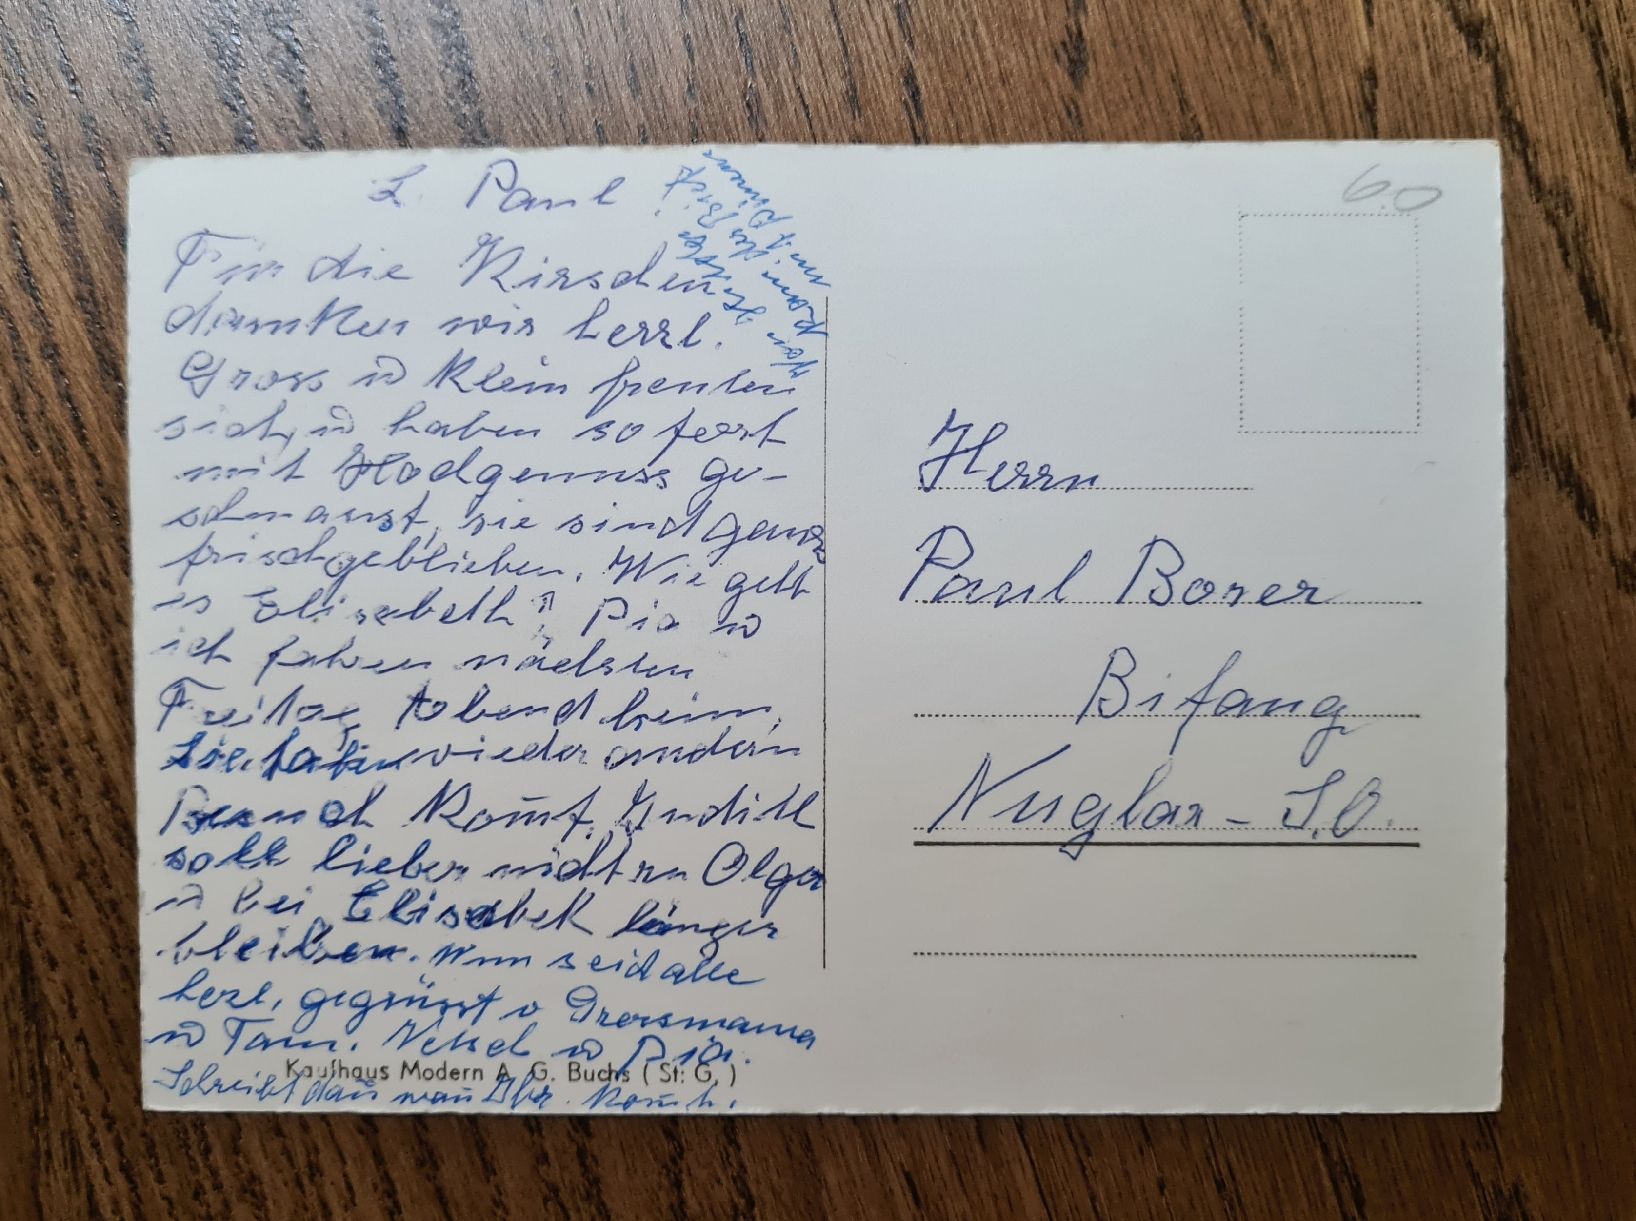 L. Paul
Für die Kirschen
danken wir herzl.
Gross u Klein freuten
sich, u haben sofort
mit Hochgenuss ge-
schmaust, sie sind ganz
frisch geblieben. Wie geht
es Elisabeth? Pia u
ich fahren nächsten
Freitag Abend heim,
wieder andern
Besuch kommt. Judith
soll lieber nicht zu Olga
u bei Elisabeth länger
bleiben. Nun seid alle
herzl. gegrüsst v Grossmama
u Fam. u Pia.
Schreibt dann wann Ihr kommt.
Von
kam
Herrn
Paul Borer
Bifang
Nuglar - S.O.
60
Kaufhaus Modern A. G. Buchs (St. G.)